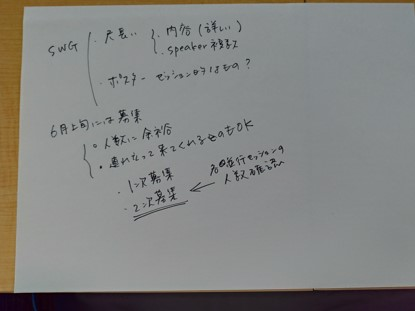 SWG
・尺長い
内容(詳しい)
speaker 視 
・ポスターセッション的なもの?
6月上旬には募集
。人数に余裕
。連れだって来てくれるのもOK
・1次募集
・2次募集
各並行セッションの
人数確認